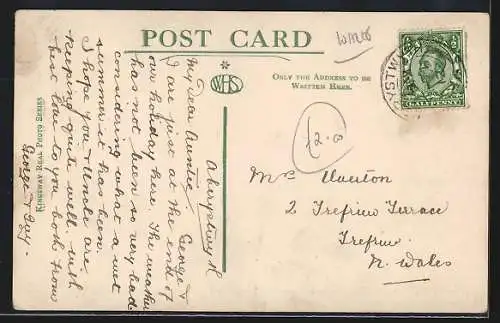 POST CARD
WHS
ONLY THE ADDRESS TO BE
WRITTEN HERE.
KINGSWAY REAL PHOTO SERIES
YSTW
HALFPENNY
2.0
Aberystwyth
My dear Auntie, George &
I are just at the end of
our holiday here. The weather
has not been so very bad
considering what a wet
summer it has been.
I hope you & Uncle are
keeping quite well. with
best love to you both from
George & Guy.
Mrs Elverton
2 Trefriw Terrace
Trefriw
N. Wales